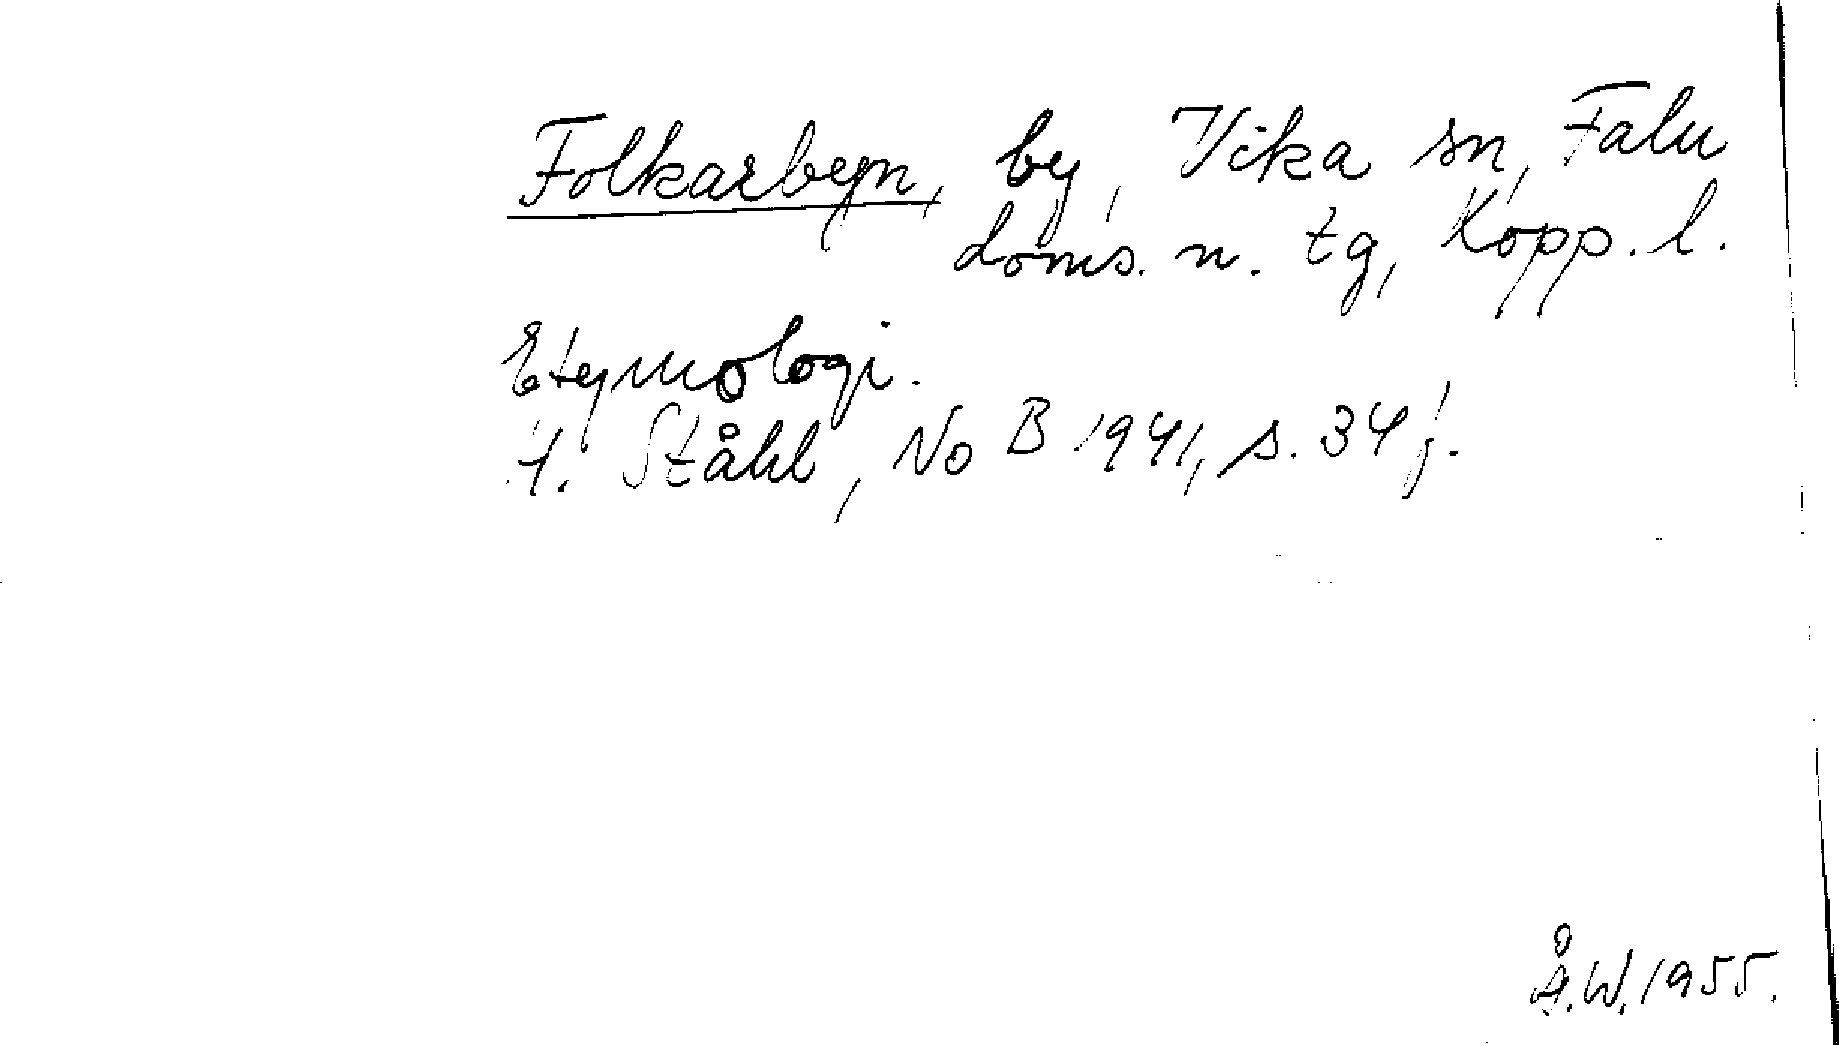 Folkarbyn, by, Vika sn, Falu
doms. n. tg, Kopp. l.
Etymologi.
H. Ståhl, NoB 1941, s. 34 f.
Å.W. 1955.